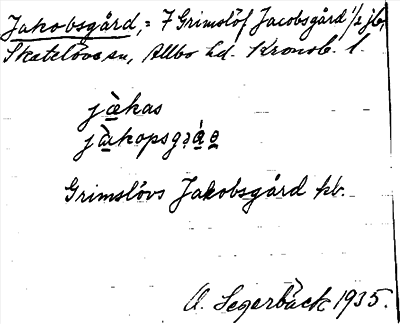 Jakobsgård, = 7 Grimslöf Jacobsgård 1/2 jb,
Skatelövs sn, Allbo hd. Kronob. l.
jàkas
jàkopsgɔ
Grimslövs Jakobsgård kb.
A. Segerbäck 1935.